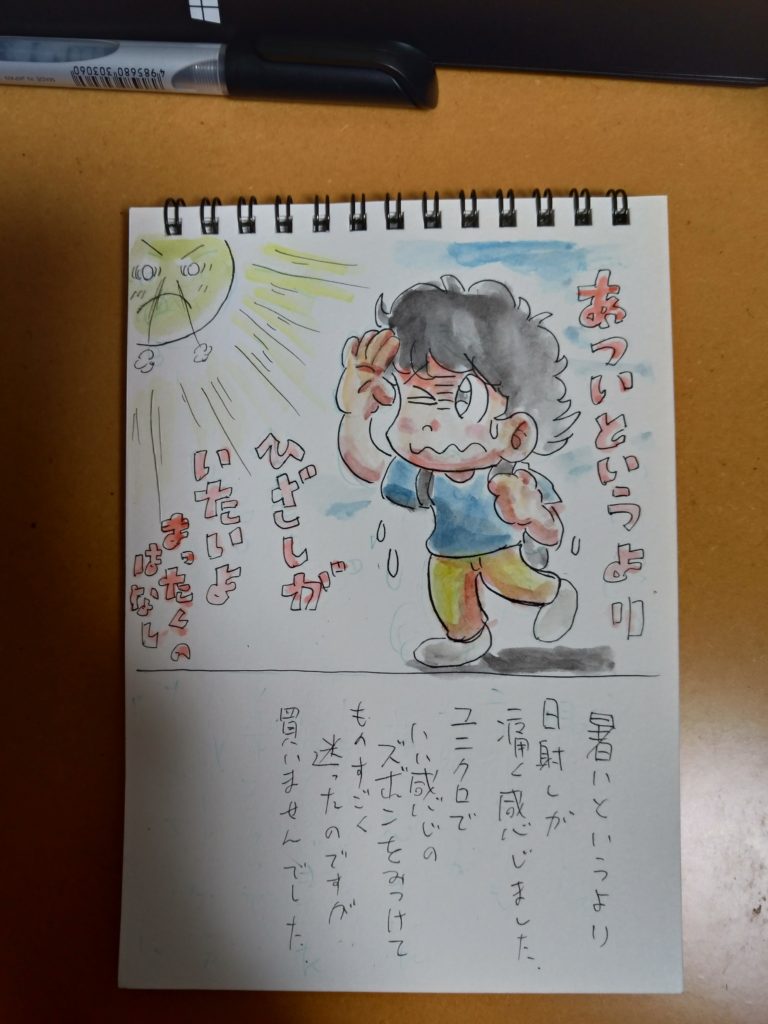 MADE IN JAPAN
4985680 303060
あついというより
ひざしが
いたいよ
まったくの
はなし
暑いというより
日射しが
痛く感じました。
ユニクロで
いい感じの
ズボンをみつけて
ものすごく
迷ったのですが
買いませんでした。